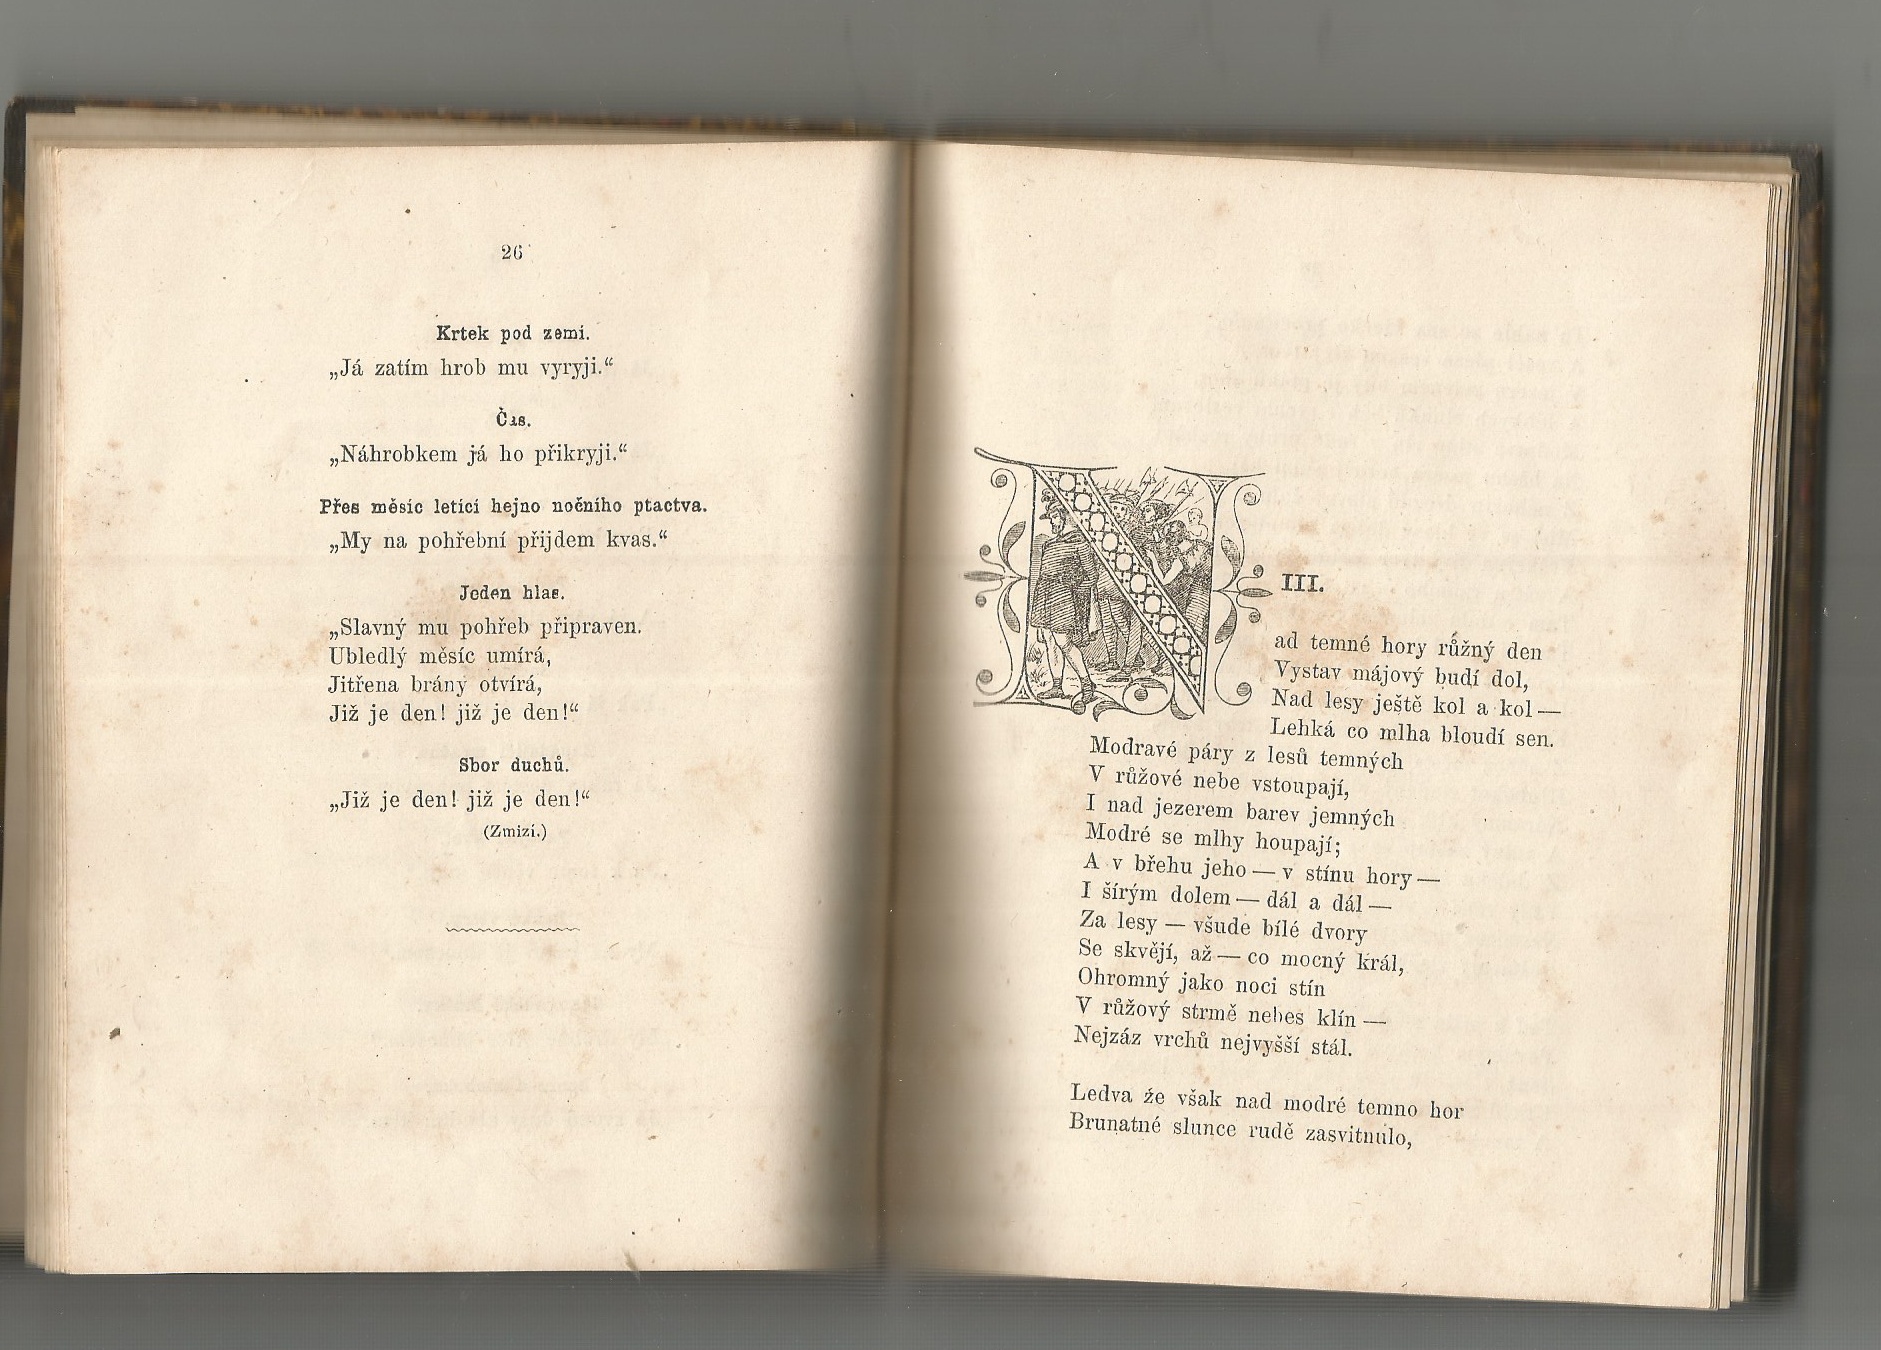 26
Krtek pod zemi.
„Já zatím hrob mu vyryji.“
Čas.
„Náhrobkem já ho přikryji.“
Přes měsíc letící hejno nočního ptactva.
„My na pohřební přijdem kvas.“
Jeden hlas.
„Slavný mu pohřeb připraven.
Ubledlý měsíc umírá,
Jitřena brány otvírá,
Již je den! již je den!“
Sbor duchů.
„Již je den! již je den!“
(Zmizí.)
III.
Nad temné hory růžný den
Vystav májový budí dol,
Nad lesy ještě kol a kol —
Lehká co mlha bloudí sen.
Modravé páry z lesů temných
V růžové nebe vstoupají,
I nad jezerem barev jemných
Modré se mlhy houpají;
A v břehu jeho — v stínu hory —
I šírým dolem — dál a dál —
Za lesy — všude bílé dvory
Se skvějí, až — co mocný král,
Ohromný jako noci stín
V růžový strmě nebes klín —
Nejzáz vrchů nejvyšší stál.
Ledva že však nad modré temno hor
Brunatné slunce rudě zasvitnulo,